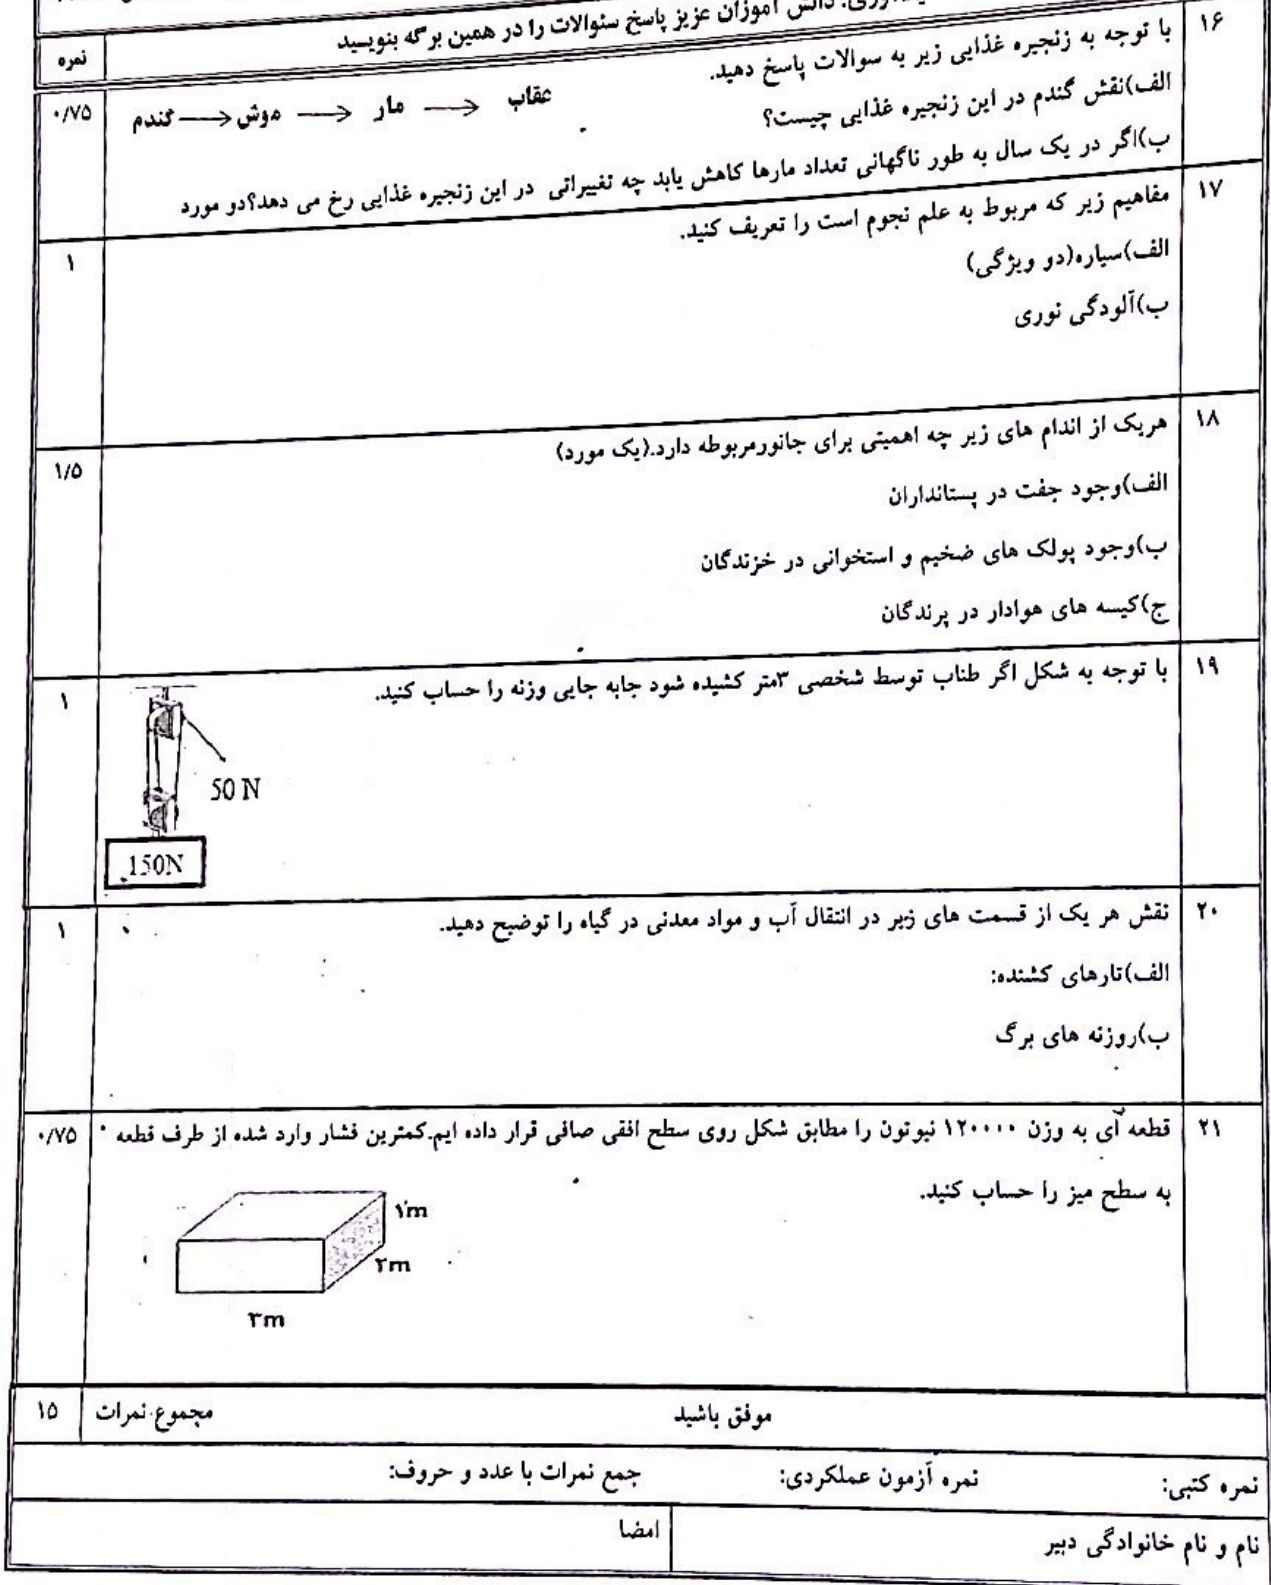 دانش آموزان عزیز پاسخ سئوالات را در همین برگه بنویسید
نمره
۱۶ با توجه به زنجیره غذایی زیر به سوالات پاسخ دهید.
۰/۷۵
گندم → موش → مار → عقاب
الف)نقش گندم در این زنجیره غذایی چیست؟
ب)اگر در یک سال به طور ناگهانی تعداد مارها کاهش یابد چه تغییراتی در این زنجیره غذایی رخ می دهد؟دو مورد
۱۷ مفاهیم زیر که مربوط به علم نجوم است را تعریف کنید.
۱
الف)سیاره(دو ویژگی)
ب)آلودگی نوری
۱۸ هریک از اندام های زیر چه اهمیتی برای جانورمربوطه دارد.(یک مورد)
۱/۵
الف)وجود جفت در پستانداران
ب)وجود پولک های ضخیم و استخوانی در خزندگان
ج)کیسه های هوادار در پرندگان
۱۹ با توجه به شکل اگر طناب توسط شخصی ۳متر کشیده شود جابه جایی وزنه را حساب کنید.
۱
50 N
150N
۲۰ نقش هر یک از قسمت های زیر در انتقال آب و مواد معدنی در گیاه را توضیح دهید.
۱
الف)تارهای کشنده:
ب)روزنه های برگ
۲۱ قطعه آی به وزن ۱۲۰۰۰۰ نیوتون را مطابق شکل روی سطح افقی صافی قرار داده ایم.کمترین فشار وارد شده از طرف قطعه
۰/۷۵
به سطح میز را حساب کنید.
۱m
۲m
۳m
موفق باشید
مجموع نمرات ۱۵
نمره کتبی: نمره آزمون عملکردی: جمع نمرات با عدد و حروف:
نام و نام خانوادگی دبیر امضا